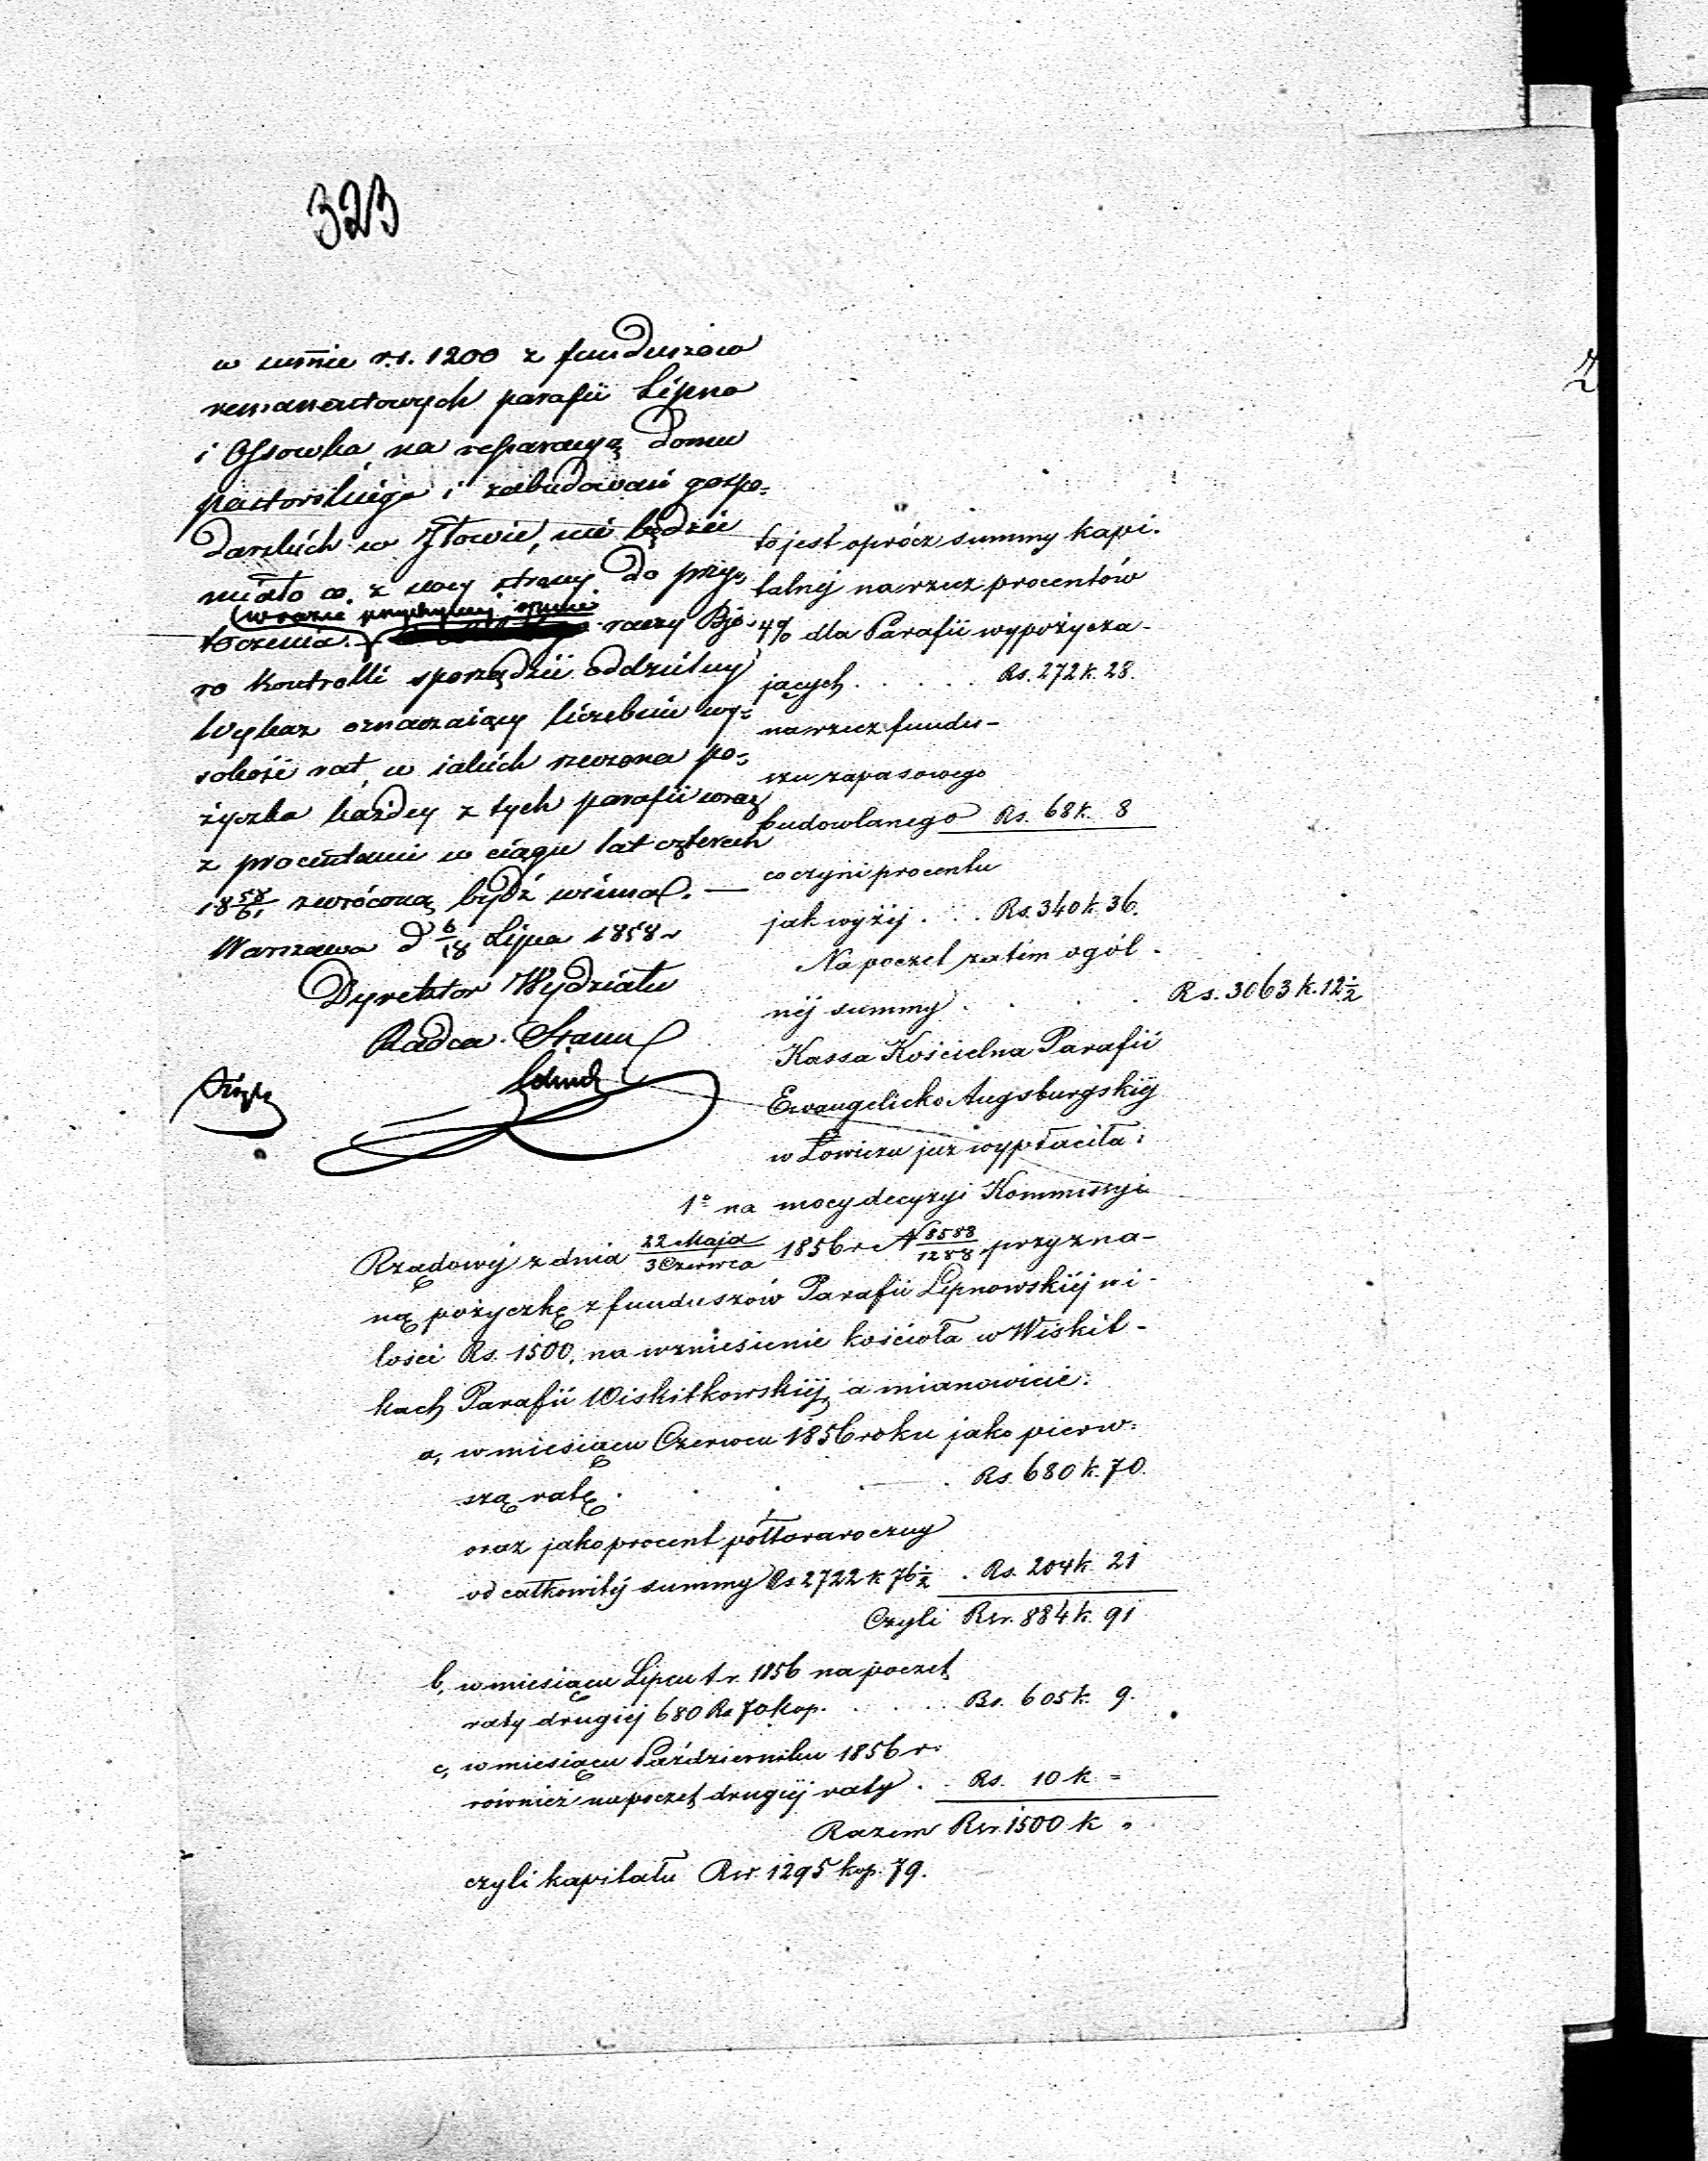 323
w sumie r.s. 1200 z funduszów
remanentowych parafii Lipno
i Ossowka na reparacyą domu
pastorskiego i zabudowań gospo=
darskich w Iłowie, nie będzie
miało co z swey strony do przy=
toczenia. w razie przychylney opinii raczy Bjó=
ro Kontrolli sporządzić oddzielny
Wykaz oznaczaiący liczebnie wy=
sokość rat, w iakich rzeczona po=
życzka każdey z tych parafii wraz
z procentami w ciągu lat czterech
18 58/61 zwróconą bydź winna. —
Warszawa d 6/18 Lipca 1858 r
Dyrektor Wydziału
Radca Stanu
to jest oprócz summy kapi-
talnéj na rzecz procentów
4% dla Parafii wypożycza-
jących . . . . . Rs. 272 k. 28.
na rzecz fundu-
szu zapasowego
budowlanego Rs. 68 k. 8
co czyni procentu
jak wyżéj . . . Rs. 340 k. 36.
Na poczet zatém ogól-
néj summy . . . . Rs. 3063 k. 12½
Kassa Kościelna Parafii
Ewangelicko Augsburgskiéj
w Łowiczu już wypłaciła:
1º na mocy decyzyi Kommissyi
Rządowéj z dnia 22 Maja/3 Czerwca 1856 r N 8588/1288 przyzna-
ną pożyczkę z funduszów Parafii Lipnowskiéj w i-
lości Rs. 1500, na wzniesienie kościoła w Wiskit-
kach Parafii Wiskitkowskiéj, a mianowicie:
a, w miesiącu Czerwcu 1856 roku jako pierw=
szą ratę . . . . . Rs. 680 k. 70.
oraz jako procent półtoraroczny
od całkowitéj summy Rs 2722 k 76½ . Rs. 204 k. 21
Czyli Rsr. 884 k. 91
b, w miesiącu Lipcu t. r. 1856 na poczet
raty drugiéj 680 Rs 70 kop. . . . . Rs. 605 k. 9.
c, w miesiącu Październiku 1856 r.
również na poczet drugiéj raty . . Rs. 10 k =
Razem Rsr. 1500 k "
czyli kapitału Rsr. 1295 kop. 79.